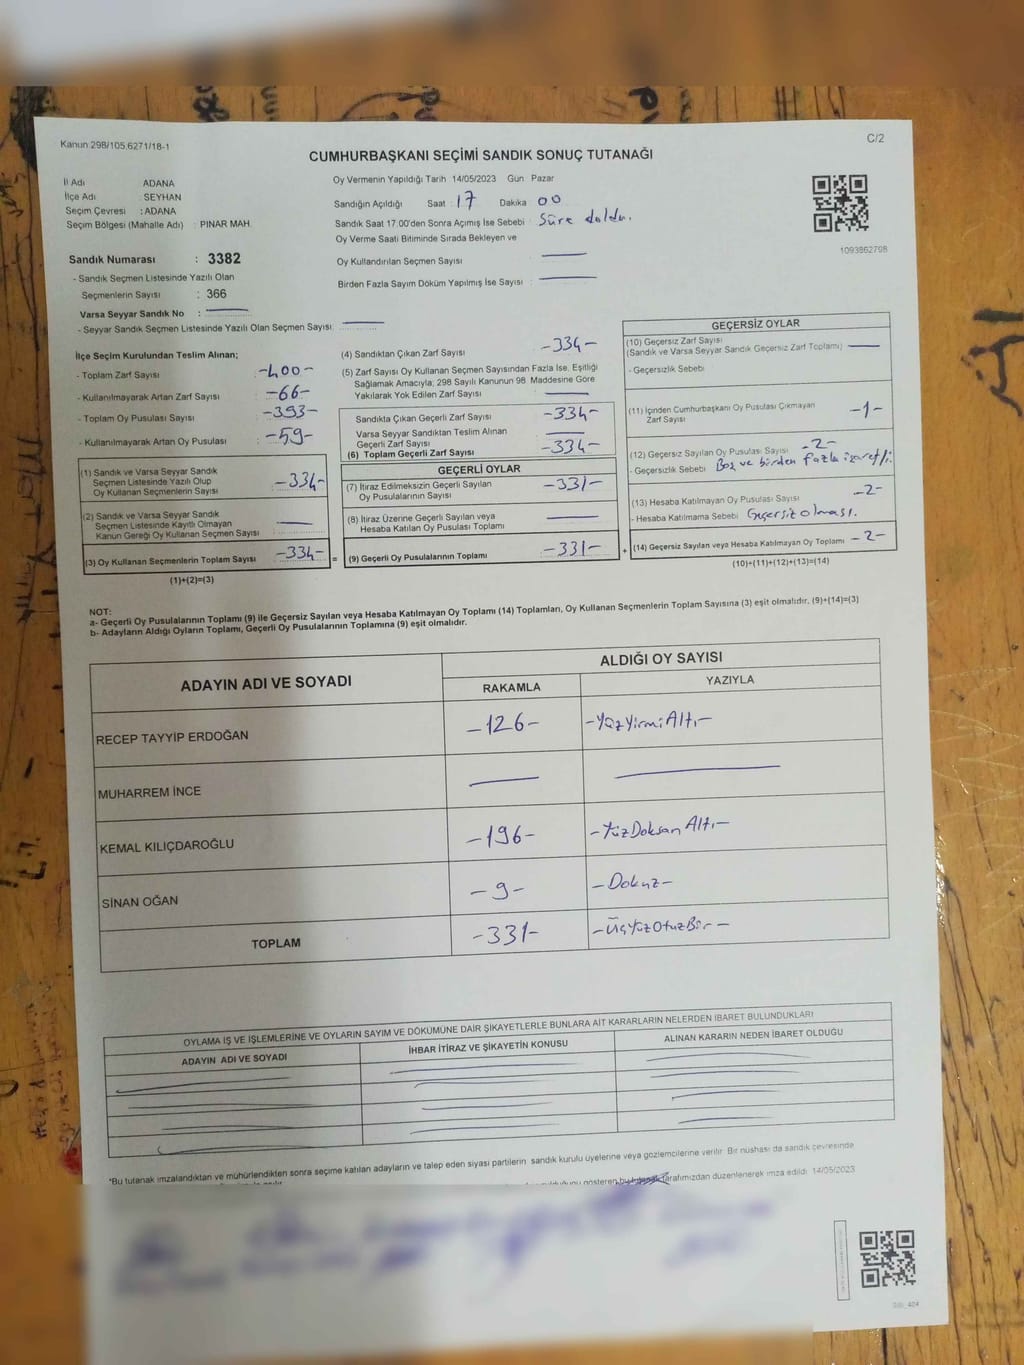 Kanun 298/105,6271/18-1
C/2
CUMHURBAŞKANI SEÇİMİ SANDIK SONUÇ TUTANAĞI
İl Adı ADANA
İlçe Adı SEYHAN
Seçim Çevresi : ADANA
Seçim Bölgesi (Mahalle Adı) : PINAR MAH.
Sandık Numarası : 3382
- Sandık Seçmen Listesinde Yazılı Olan
Seçmenlerin Sayısı : 366
Varsa Seyyar Sandık No :
- Seyyar Sandık Seçmen Listesinde Yazılı Olan Seçmen Sayısı:
Oy Vermenin Yapıldığı Tarih 14/05/2023 Gün Pazar
Sandığın Açıldığı Saat : 17 Dakika 00
Sandık Saat 17.00'den Sonra Açımış İse Sebebi : Süre doldu.
Oy Verme Saati Bitiminde Sırada Bekleyen ve
Oy Kullandırılan Seçmen Sayısı :
Birden Fazla Sayım Döküm Yapılmış İse Sayısı :
1093862798
İlçe Seçim Kurulundan Teslim Alınan;
- Toplam Zarf Sayısı : -400-
- Kullanılmayarak Artan Zarf Sayısı : -66-
- Toplam Oy Pusulası Sayısı : -393-
- Kullanılmayarak Artan Oy Pusulası : -59-
(1) Sandık ve Varsa Seyyar Sandık
Seçmen Listesinde Yazılı Olup
Oy Kullanan Seçmenlerin Sayısı : -334-
(2) Sandık ve Varsa Seyyar Sandık
Seçmen Listesinde Kayıtlı Olmayan
Kanun Gereği Oy Kullanan Seçmen Sayısı :
(3) Oy Kullanan Seçmenlerin Toplam Sayısı : -334- =
(1)+(2)=(3)
(4) Sandıktan Çıkan Zarf Sayısı : -334-
(5) Zarf Sayısı Oy Kullanan Seçmen Sayısından Fazla İse, Eşitliği
Sağlamak Amacıyla; 298 Sayılı Kanunun 98. Maddesine Göre
Yakılarak Yok Edilen Zarf Sayısı :
Sandıkta Çıkan Geçerli Zarf Sayısı : -334-
Varsa Seyyar Sandıktan Teslim Alınan
Geçerli Zarf Sayısı :
(6) Toplam Geçerli Zarf Sayısı : -334-
GEÇERLİ OYLAR
(7) İtiraz Edilmeksizin Geçerli Sayılan
Oy Pusulalarının Sayısı : -331-
(8) İtiraz Üzerine Geçerli Sayılan veya
Hesaba Katılan Oy Pusulası Toplamı :
(9) Geçerli Oy Pusulalarının Toplamı : -331- +
GEÇERSİZ OYLAR
(10) Geçersiz Zarf Sayısı
(Sandık ve Varsa Seyyar Sandık Geçersiz Zarf Toplamı) :
- Geçersizlik Sebebi
(11) İçinden Cumhurbaşkanı Oy Pusulası Çıkmayan
Zarf Sayısı : -1-
(12) Geçersiz Sayılan Oy Pusulası Sayısı : -2-
- Geçersizlik Sebebi Boş ve birden fazla işaretli.
(13) Hesaba Katılmayan Oy Pusulası Sayısı : -2-
- Hesaba Katılmama Sebebi Geçersiz olması.
(14) Geçersiz Sayılan veya Hesaba Katılmayan Oy Toplamı : -2-
(10)+(11)+(12)+(13)=(14)
NOT:
a- Geçerli Oy Pusulalarının Toplamı (9) ile Geçersiz Sayılan veya Hesaba Katılmayan Oy Toplamı (14) Toplamları, Oy Kullanan Seçmenlerin Toplam Sayısına (3) eşit olmalıdır. (9)+(14)=(3)
b- Adayların Aldığı Oyların Toplamı, Geçerli Oy Pusulalarının Toplamına (9) eşit olmalıdır.
ADAYIN ADI VE SOYADI ALDIĞI OY SAYISI
RAKAMLA YAZIYLA
RECEP TAYYİP ERDOĞAN -126- -YüzYirmiAltı-
MUHARREM İNCE
KEMAL KILIÇDAROĞLU -196- -YüzDoksanAltı-
SİNAN OĞAN -9- -Dokuz-
TOPLAM -331- -ÜçYüzOtuzBir-
OYLAMA İŞ VE İŞLEMLERİNE VE OYLARIN SAYIM VE DÖKÜMÜNE DAİR ŞİKAYETLERLE BUNLARA AİT KARARLARIN NELERDEN İBARET BULUNDUKLARI
ADAYIN ADI VE SOYADI İHBAR İTİRAZ VE ŞİKAYETİN KONUSU ALINAN KARARIN NEDEN İBARET OLDUĞU
*Bu tutanak imzalandıktan ve mühürlendikten sonra seçime katılan adayların ve talep eden siyasi partilerin sandık kurulu üyelerine veya gözlemcilerine verilir. Bir nushası da sandık çevresinde
gösteren tarafımızdan düzenlenerek imza edildi. 14/05/2023